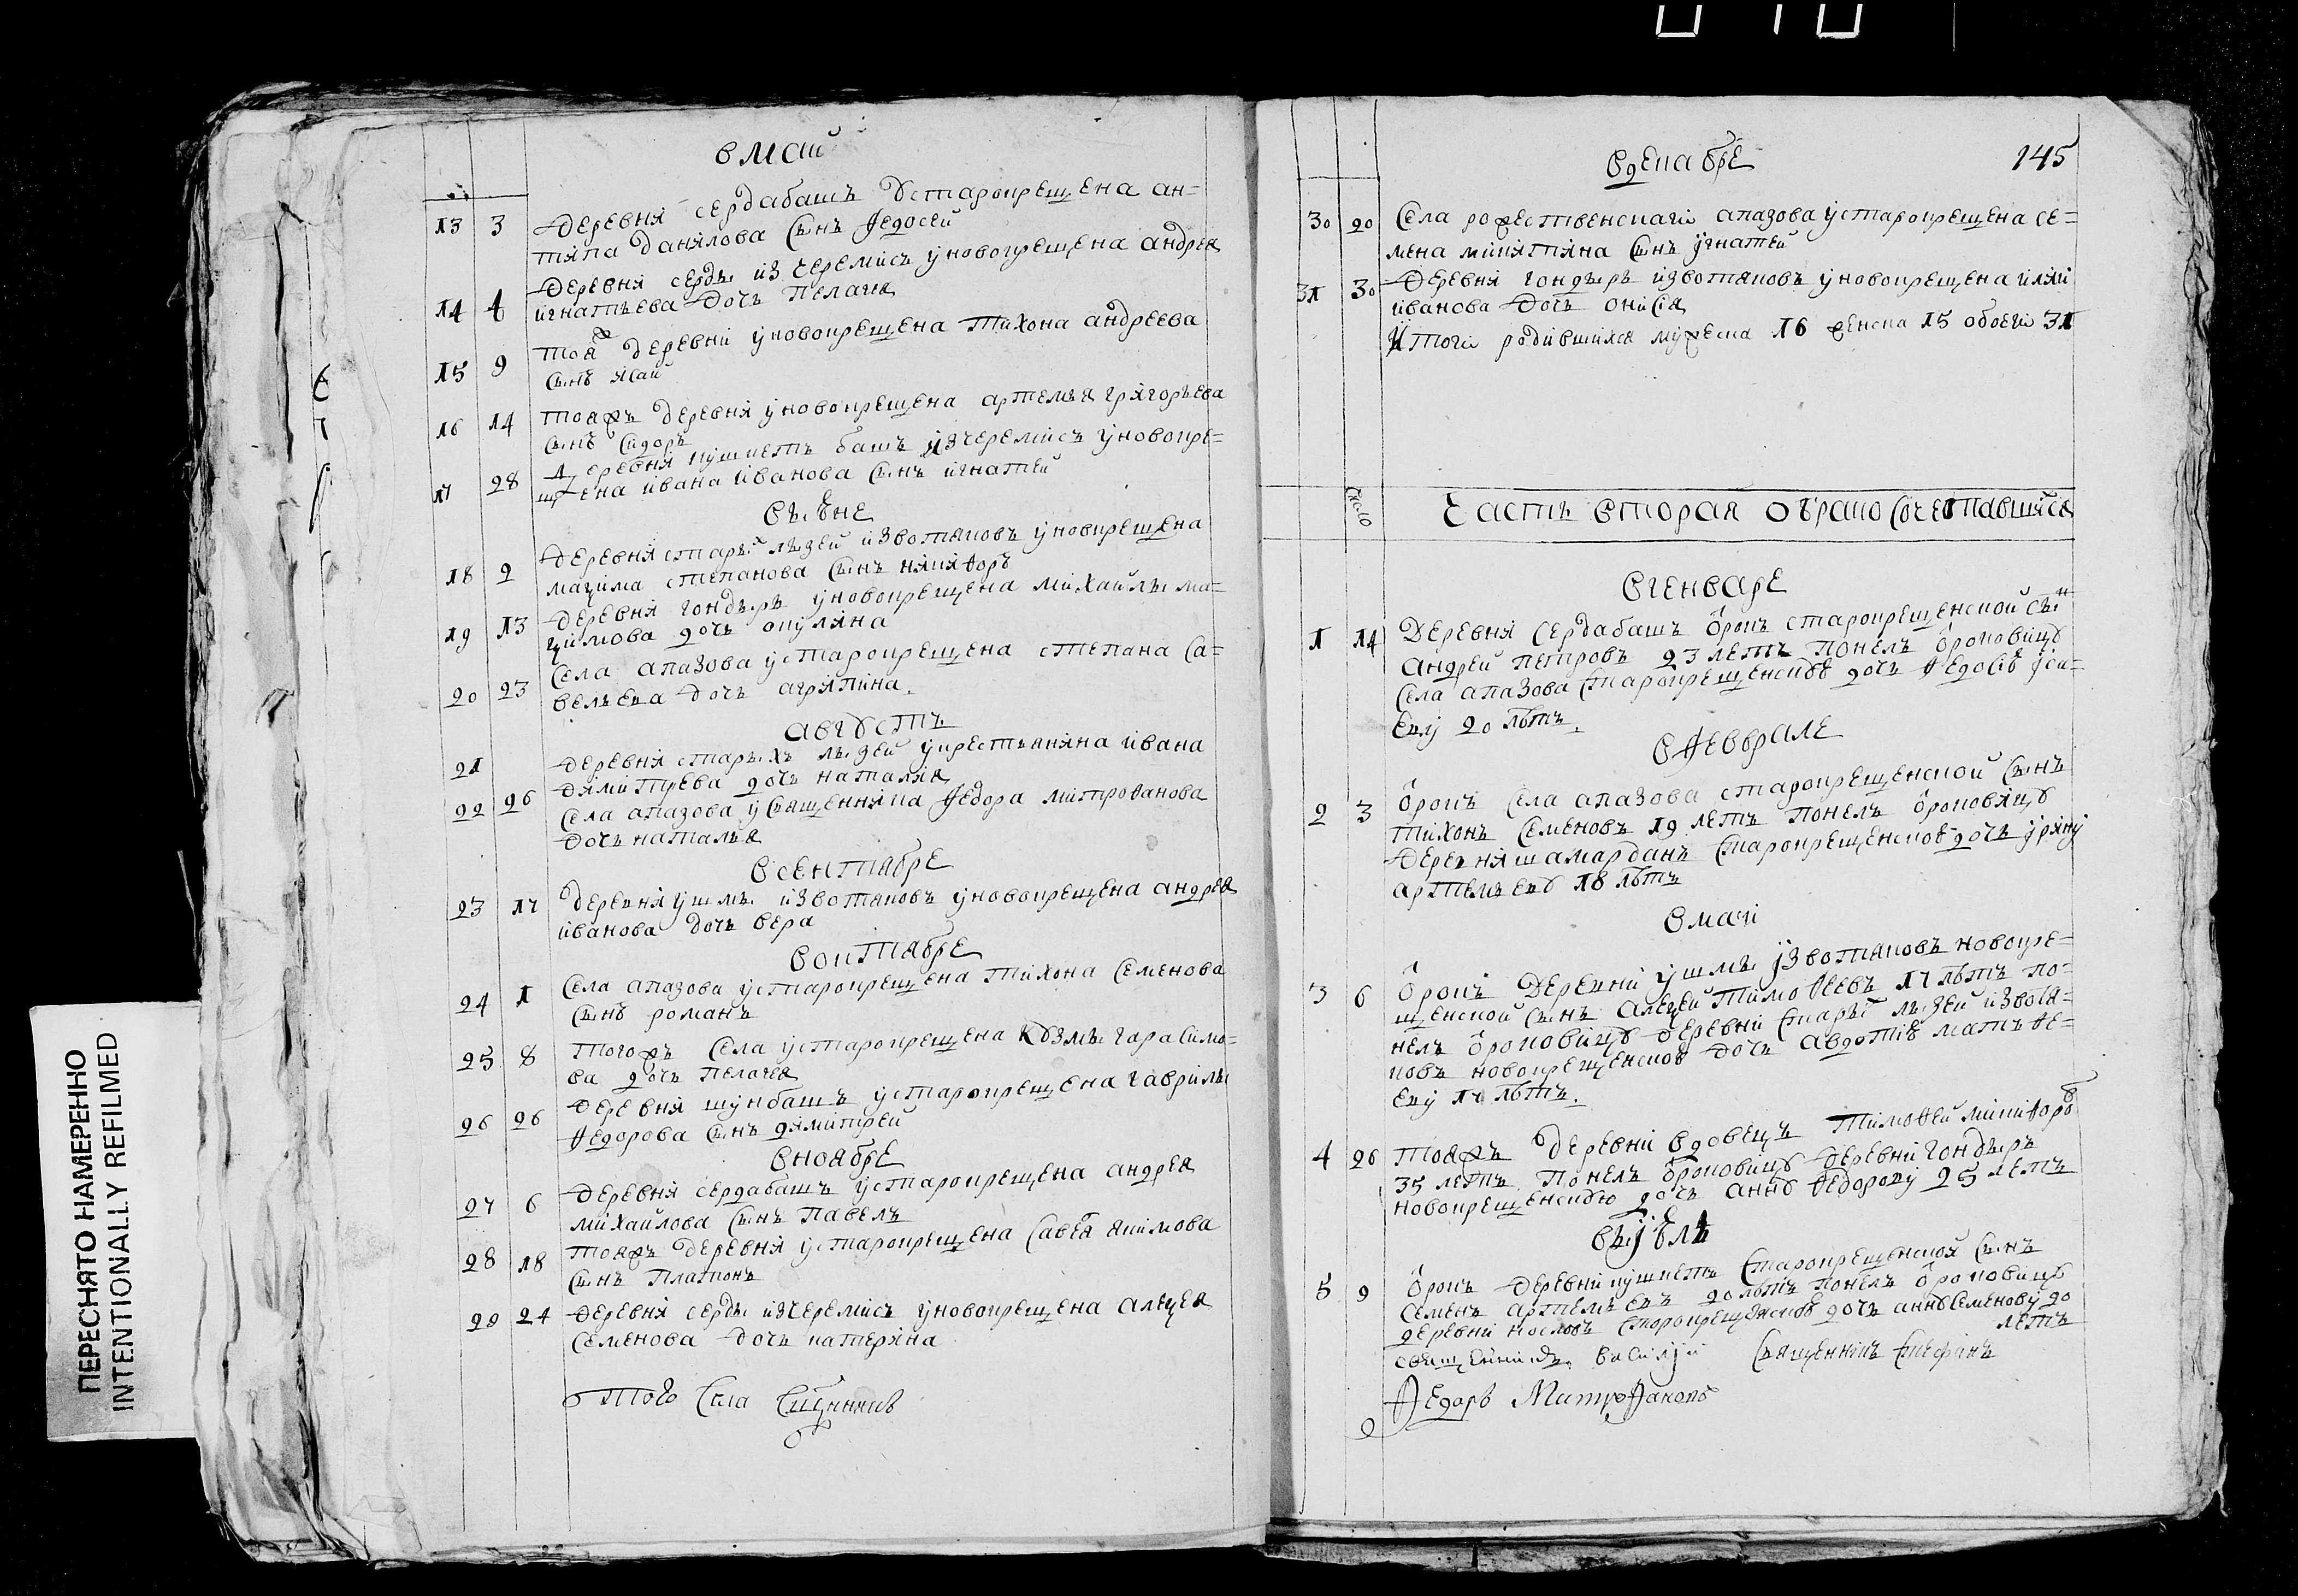 в маи
13 3 Деревня сердабашъ Устарокрещена ан=
типа данилова сынъ Ѳедосей
Деревня серды из черемисъ у новокрещена андрея
14 4 игнатьева дочь пелагея
тояж деревни у новокрещена тихона андреева
15 9 сынъ исаи
16 14 тояжъ деревня у новокрещена артемья григорьева
сынъ сидоръ
Деревня кушкетъ башъ из черемисъ у новокре=
17 28 щена ивана иванова сынъ игнатеи
в июне
Деревня старыхъ лызеи из вотяковъ у новокрещена
18 2 маѯима степанова сынъ никиѳоръ
Деревня гондыръ у новокрещена михаилы ма=
19 13 ѯимова дочь окулина
Села апазова у старокрещена степана са=
20 23 вельева дочь агрипина
августъ
21 деревня старыхъ лызеи у крестьянина ивана
димитрева дочь наталия
22 26 Села апазова у священника Ѳедора митроѳанова
дочь наталья
в сентябре
23 17 деревня ушмы из вотяковъ у новокрещена андрея
иванова дочь вера
в октябре
24 1 Села апазова у старокрещена тихона семенова
сынъ романъ
25 8 тогожъ села у старокрещена кузмы гарасимо=
ва дочь пелагея
26 26 деревня шунбашъ у старокрещена гаврилы
Ѳедорова сынъ димитреи
в ноябре
27 6 деревня сердабашъ у старокрещена андрея
михаилова сынъ павелъ
28 18 тояжъ деревня у старокрещена савея якимова
сынъ платонъ
29 24 деревня серды из черемисъ у новокрещена алеѯея
семенова дочь катерина
того села священникъ
в декабре 145
30 20 села рожественскаго апазова у старокрещена се=
мена микитина сынъ игнатеи
31 30 деревня гондыръ из вотяковъ у новокрещена или
иванова дочь онися
Итого родившихся мужеска 16 женска 15 обоего 31
число
Часть вторая о брако сочетавшихся
в генваре
1 14 Деревня сердабашъ отрокъ старокрещенской сынъ
андреи петровъ 23 летъ понелъ отроковицу
села апазова старокрещенскую дочь Ѳедосю иса=
еву 20 летъ
в Ѳеврале
2 3 отрокъ села апазова старокрещенской сынъ
тихонъ семеновъ 19 летъ понелъ отроковицу
деревня шамарданъ старокрещенскую дочь ирину
артемьеву 18 летъ
в маи
3 6 отрокъ деревни ушмы из вотяковъ новокре=
щенской сынъ алеѯеи тимоѳеевъ 17 летъ по=
нелъ отроковицу деревни старых лызеи из вотя=
ковъ новокрещенскую дочь авдотю матѳе=
еву 17 летъ
4 26 тояжъ деревни вдовецъ тимоѳеи микиѳоров
35 летъ понелъ отроковицу деревни гондыръ
новокрещенскую дочь анну Ѳедорову 25 летъ
в июле
5 9 отрокъ деревни кушкетъ старокрещенской сынъ
семенъ артемьевъ 20 летъ понелъ отроковицу
деревни нословъ старокрещенскую дочь анну семенову 20
летъ
священникъ василии священникъ стефанъ
Ѳедоръ Митроѳановъ
ПЕРЕСНЯТО НАМЕРЕННО
INTENTIONALLY REFILMED